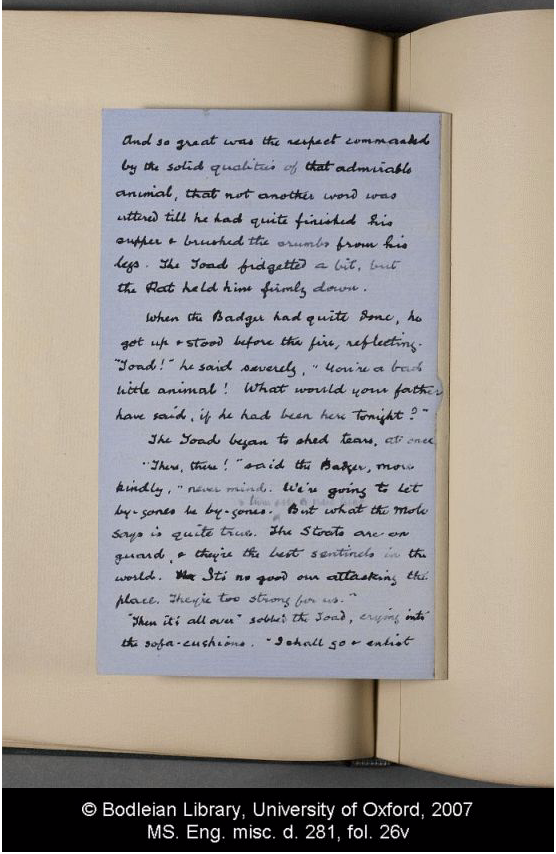 And so great was the respect commanded
by the solid qualities of that admirable
animal, that not another word was
uttered till he had quite finished his
supper & brushed the crumbs from his
legs. The Toad fidgetted a bit, but
the Rat held him firmly down.
When the Badger had quite done, he
got up & stood before the fire, reflecting.
"Toad!" he said severely, "You're a bad
little animal! What would your father
have said, if he had been here tonight?"
The Toad began to shed tears, at once
"There, there!" said the Badger, more
kindly, "never mind. We're going to let
by-gones be by-gones. But what the Mole
says is quite true. The Stoats are on
guard, & they're the best sentinels in the
world. It's no good our attacking the
place. They're too strong for us."
"Then it's all over" sobbed the Toad, crying into
the sofa-cushions. "I shall go & enlist
© Bodleian Library, University of Oxford, 2007
MS. Eng. misc. d. 281, fol. 26v